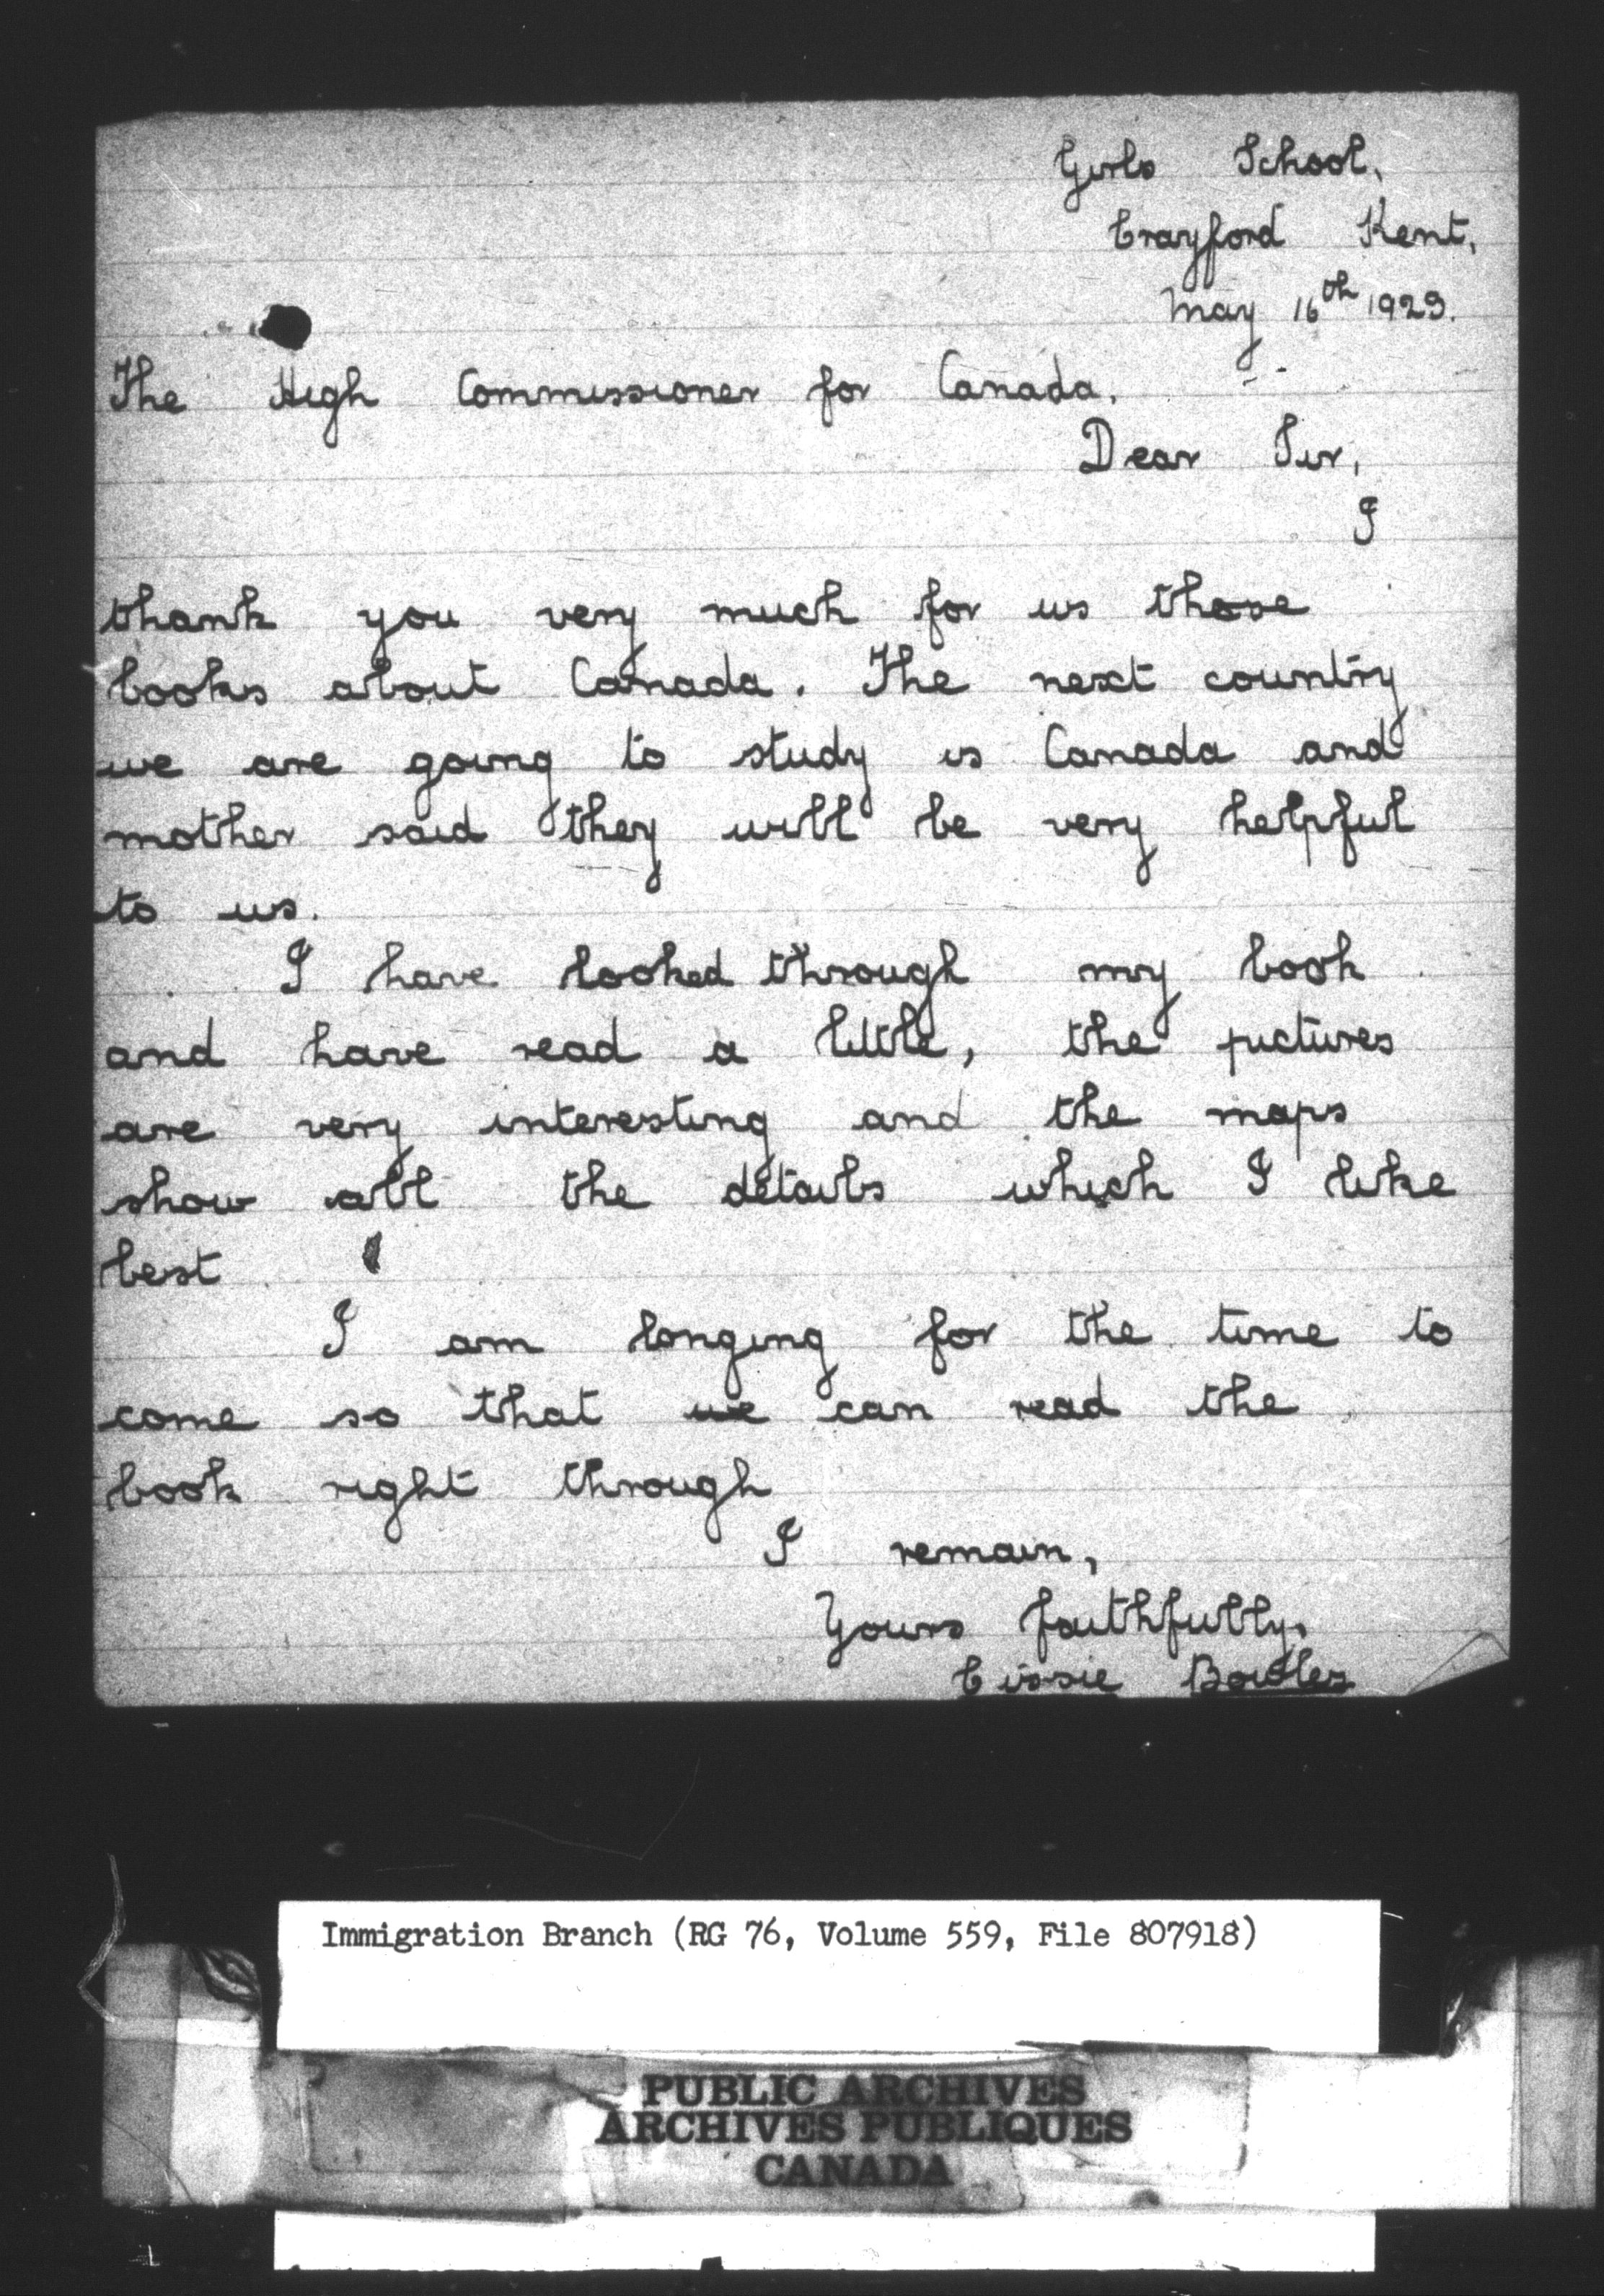 Girls School,
Crayford Kent,
May 16th 1929.
The High Commissioner for Canada.
Dear Sir,
I
thank you very much for us those
books about Canada. The next country
we are going to study is Canada and
mother said they will be very helpful
to us.
I have looked through my book
and have read a little, the pictures
are very interesting and the maps
show all the details which I like
best
I am longing for the time to
come so that we can read the
book right through
I remain,
Yours faithfully,
Cissie Bowles
Immigration Branch (RG 76, Volume 559, File 807918)
PUBLIC ARCHIVES
ARCHIVES PUBLIQUES
CANADA